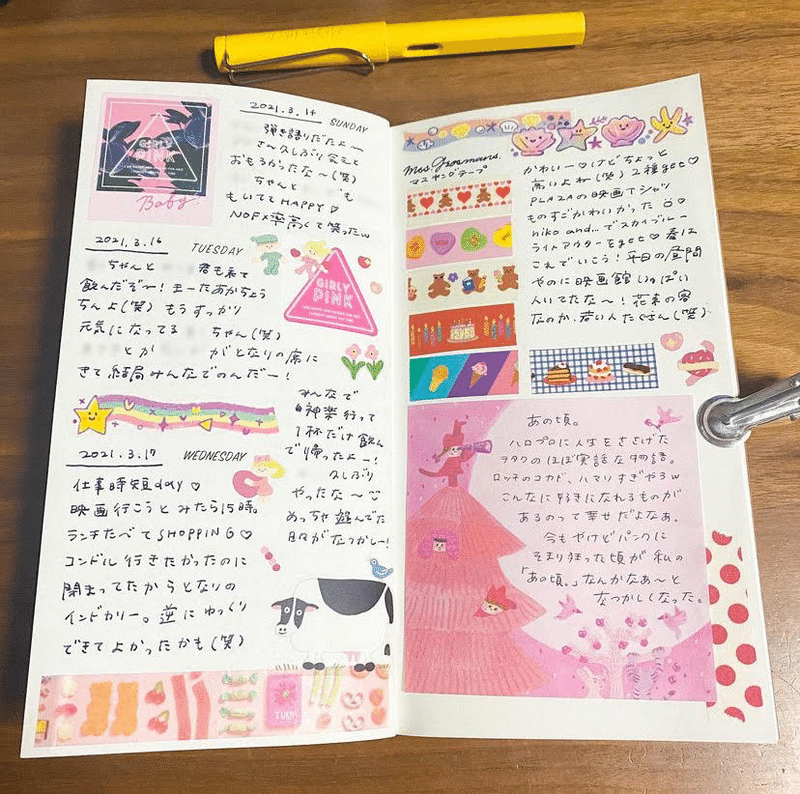 GIRLY
PINK
Baby.
2021.3.14 SUNDAY
弾き語りだよ〜
さ〜久しぶり
おもろかったな〜(笑)
ちゃんと も
もいててHAPPY♡
NOFX率高くて笑ったw
2021.3.16 TUESDAY
ちゃんと 君も来て
飲んだぞ〜!まーたあかちょう
ちんよ(笑) もうすっかり
元気になってる ちゃん(笑)
とか がとなりの席に
きて結局みんなでのんだー!
GIRLY
PINK
みんなで
神楽行って
1杯だけ飲ん
で帰ったよー!
久しぶり
やったな〜
めっちゃ遊んでた
日々がなつかしー!
2021.3.17 WEDNESDAY
仕事時短day♡
映画行こうとみたら15時。
ランチたべてSHOPPING♡
コンドル行きたかったのに
閉まってたからとなりの
インドカリー。逆にゆっくり
できてよかったかも(笑)
Mrs. Grossman's.
マスキングテープ
かわいー♡けどちょっと
高いよね(笑) 2種get♡
PLAZAの映画Tシャツ
ものすごかわいかった♡
niko and...でスカイブルー
ライトアウターをget♡春は
これでいこう!平日の昼間
やのに映画館いっぱい
人いてたな〜!花束の客
なのか、若い人たくさん(笑)
あの頃。
ハロプロに人生をささげた
ヲタクのほぼ実話な物語。
ロッチのコカド、ハマりすぎやろw
こんなに好きになれるものが
あるのって幸せだよなぁ。
今もやけどパンクに
そまり狂った頃が私の
「あの頃。」なんかなぁ〜と
なつかしくなった。